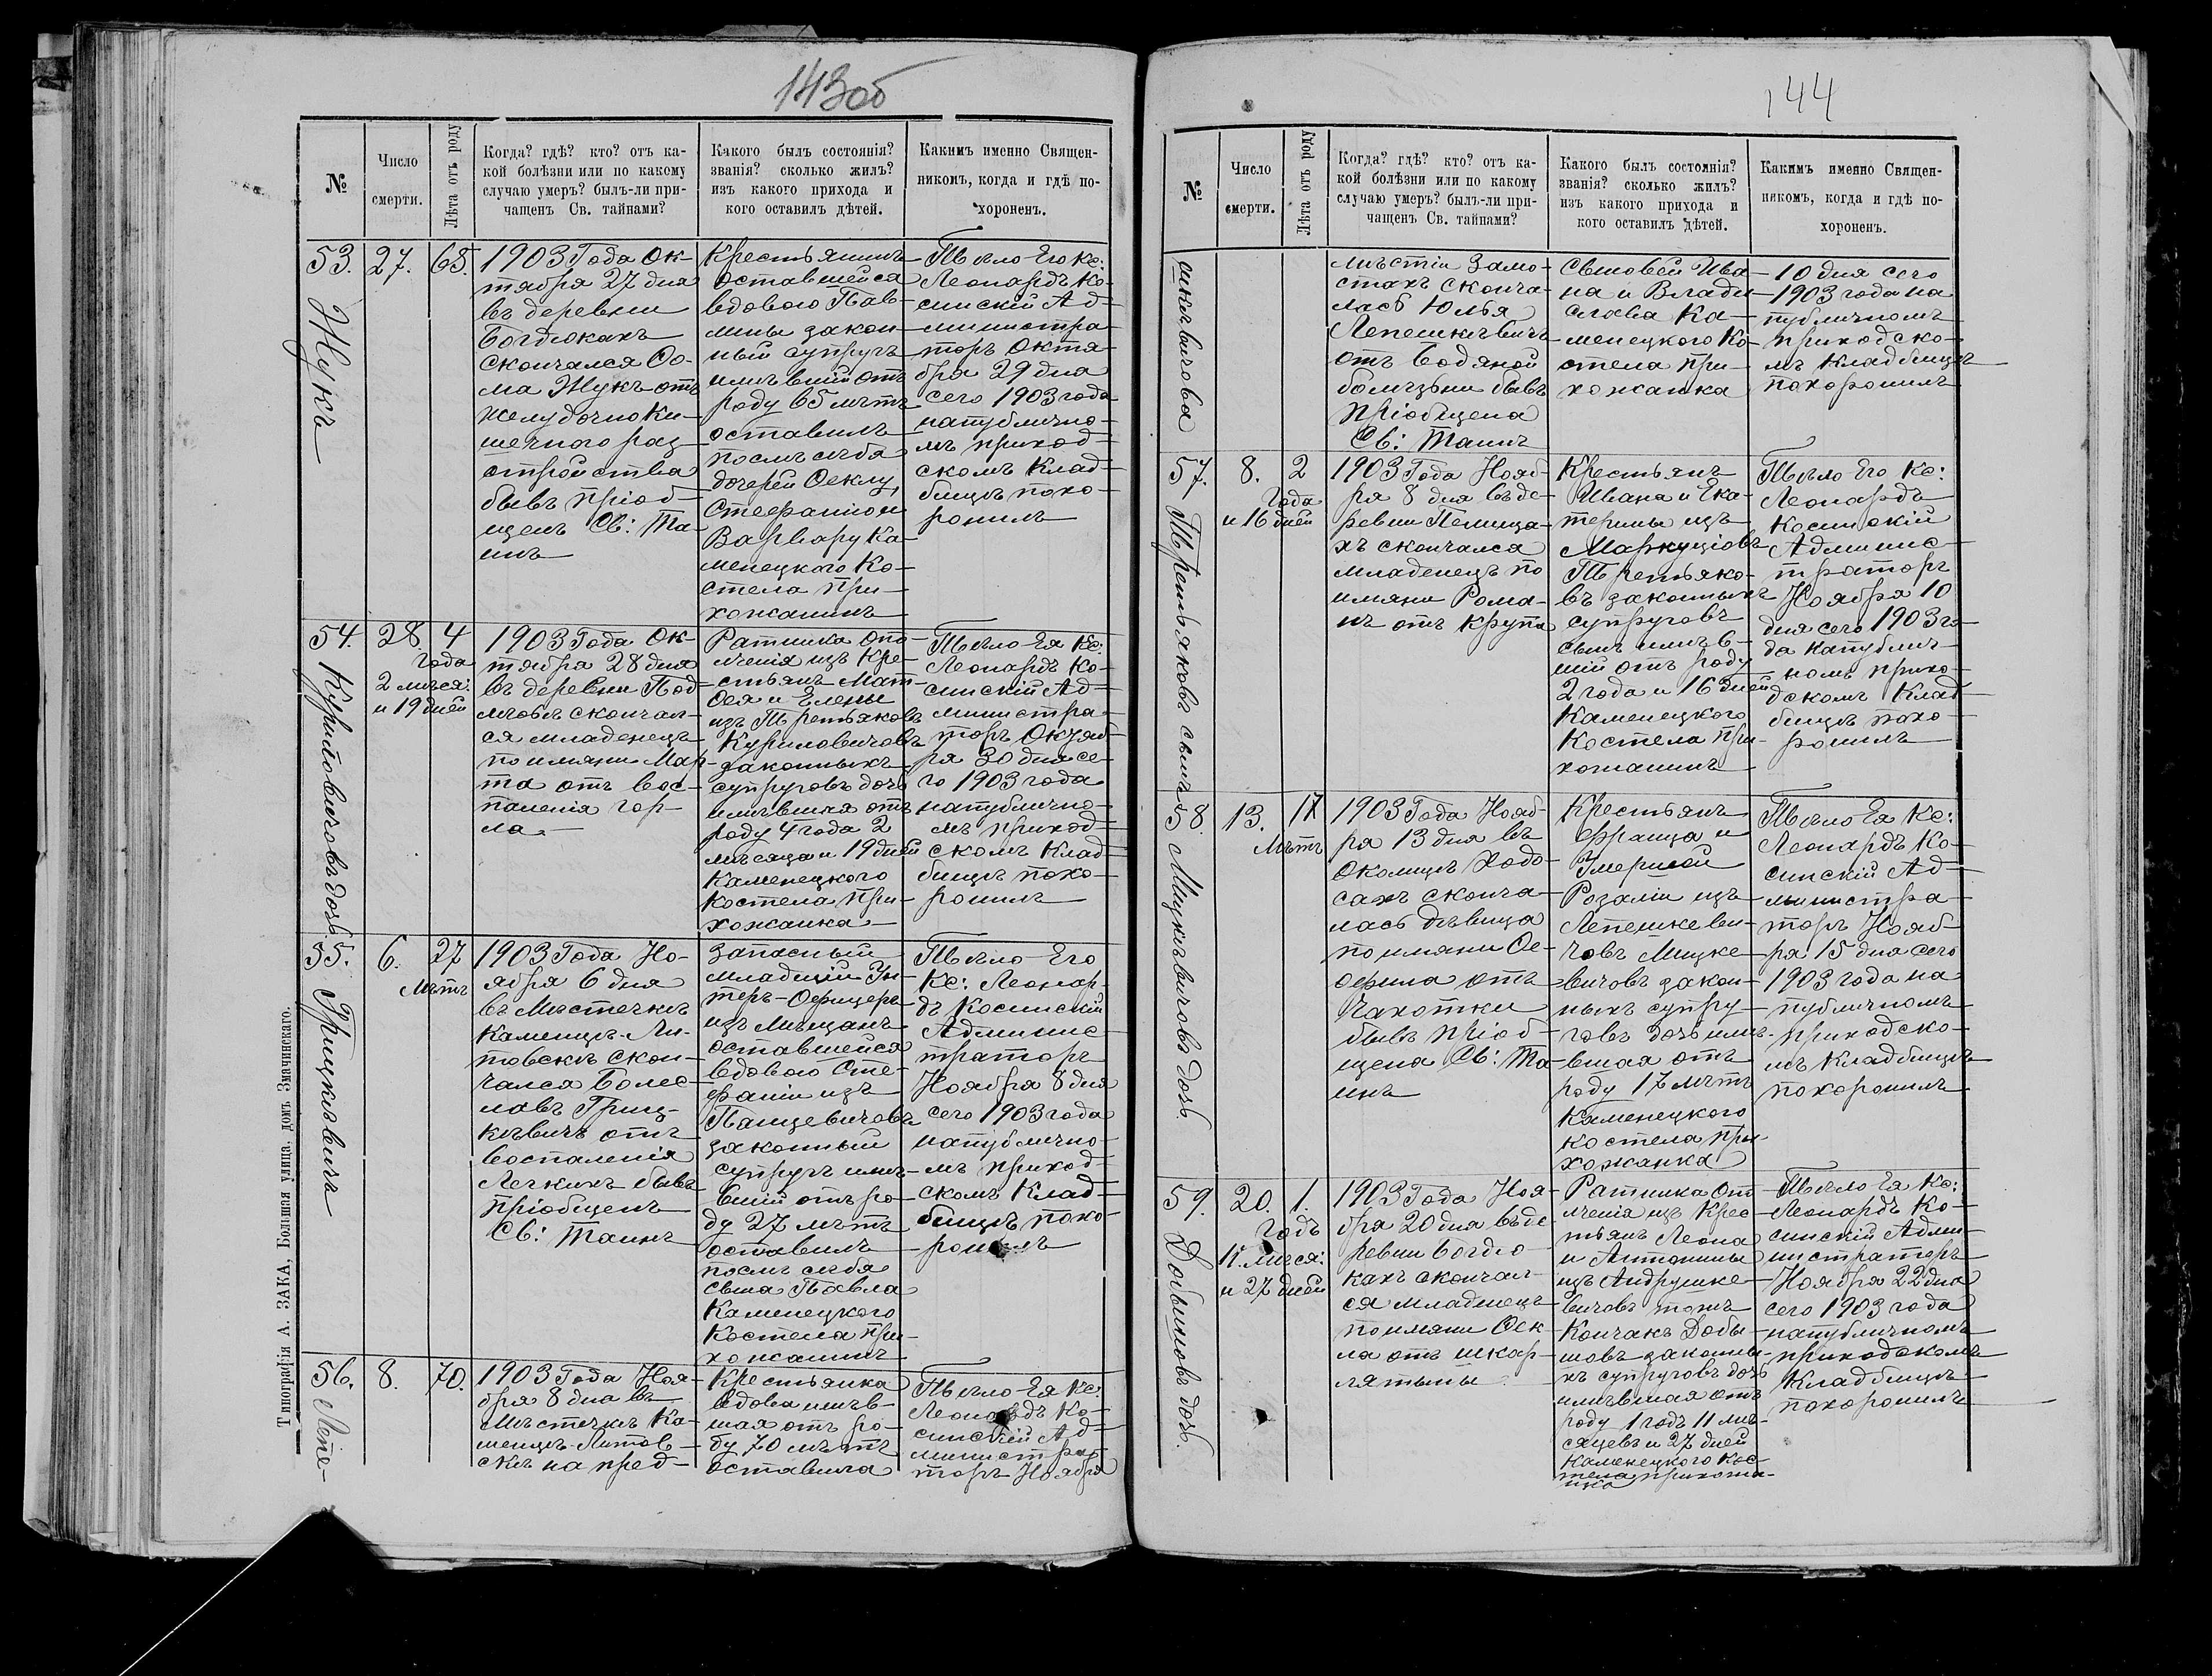 143об
№
Число
смерти.
Лѣта отъ роду
Когда? гдѣ? кто? отъ ка-
кой болѣзни или по какому
случаю умеръ? былъ-ли при-
чащенъ Св. тайнами?
Какого былъ состоянія?
званія? сколько жилъ?
изъ какого прихода и
кого оставилъ дѣтей.
Какимъ именно Священ-
никомъ, когда и гдѣ по-
хороненъ.
53.
Жукъ
27.
65.
1903 Года Ок-
тября 27 дня
въ деревни
Богдюкахъ
скончался Ѳо-
ма Жукъ отъ
желудочно ки-
шечнаго раз-
стройства
бывъ пріоб-
щенъ Св: Та-
инъ
Крестьянинъ
оставшейся
вдовою Пав-
лины закон-
ный супругъ
имѣвшій отъ
роду 65 лѣтъ
оставилъ
послѣ себя
дочерей Ѳеклу,
Стефанiю и
Варвару Ка-
менецкого Ко-
стела при-
хожанинъ
Тѣло Его Кс:
Леонардъ Ко-
синскій Ад-
министра-
торъ Октя-
бря 29 дня
сего 1903 года
на публично-
мъ приход-
скомъ Клад-
бищѣ похо-
ронилъ
54.
Куриловичовъ дочь.
28.
4
года
2 мѣся:
и 19 дней
1903 Года Ок-
тября 28 дня
въ деревни Под-
лѣсьѣ скончал-
ся младенецъ
по имяни Мар-
та отъ вос-
паленія гор-
ла.
Ратника опо-
лченія изъ Кре-
стьянъ Мат-
ѳея и Елены
изъ Третьяковъ
Куриловичовъ
законныхъ
супруговъ дочь
имѣвшая отъ
роду 4 года 2
мѣсяца и 19 дней
Каменецкого
Костела при-
хожанка
Тѣло Ея Кс:
Леонардъ Ко-
синскій Ад-
министра-
торъ Октяб-
ря 30 дня се-
го 1903 года
на публично-
мъ приход-
скомъ Клад-
бищѣ похо-
ронилъ
55.
Грицкѣвичъ
6.
27
Лѣтъ
1903 Года Но-
ября 6 дня
въ Мѣстечкѣ
Каменцѣ-Ли-
товскѣ скон-
чался Болес-
лавъ Гриц-
кѣвичъ отъ
воспаленія
Легкихъ бывъ
пріобщенъ
Св: Таинъ
Запасный
младшій Ун-
теръ-Офицеръ
изъ Мѣщанъ
оставшейся
вдовою Сте-
фаніи изъ
Панцевичовъ
законный
супругъ имѣ-
вшій отъ ро-
ду 27 лѣтъ
оставилъ
послѣ себя
сына Павла
Каменецкого
Костела при-
хожанинъ
Тѣло Его
Кс: Леонар-
дъ Косинскій
Админис-
траторъ
Ноября 8 дня
сего 1903 года
на публично-
мъ приход-
скомъ Клад-
бищѣ похо-
ронилъ
56.
Лепе-
8.
70.
1903 Года Ноя-
бря 8 дня въ
Мѣстечкѣ Ка-
менцѣ-Литов-
скѣ на пред-
Крестьянка
вдова имѣв-
шая отъ ро-
ду 70 лѣтъ
оставила
Тѣло Ея Кс:
Леонардъ Ко-
синскій Ад-
министра-
торъ Ноября
Типографія А. ЗАКА, Большая улица, домъ Змачинскаго.
144
№
Число
смерти.
Лѣта отъ роду
Когда? гдѣ? кто? отъ ка-
кой болѣзни или по какому
случаю умеръ? былъ-ли при-
чащенъ Св. тайнами?
Какого былъ состоянія?
званія? сколько жилъ?
изъ какого прихода и
кого оставилъ дѣтей.
Какимъ именно Священ-
никомъ, когда и гдѣ по-
хороненъ.
шкѣвичова
мѣстіи Замо-
стахъ сконча-
лась Юлья
Лепешкѣвичъ
отъ Водяной
болѣзьни бывъ
пріобщена
Св: Таинъ
Сыновей Ива-
на и Влади-
слава Ка-
менецкого Ко-
стела при-
хожанка
10 дня сего
1903 года на
публичномъ
приходско-
мъ Кладбищѣ
похоронилъ
57.
Третьяковъ сынъ
8.
2
Года
и 16 дней
1903 Года Нояб-
ря 8 дня въ де-
ревни Пелища-
хъ скончался
младенецъ по
имяни Рома-
нъ отъ Крупа
Крестьянъ
Ивана и Ека-
терины изъ
Маркуціовъ
Третьяко-
въ законныхъ
супруговъ
сынъ имѣв-
шій отъ роду
2 года и 16 дней
Каменецкого
Костела При-
хожанинъ
Тѣло Его Кс:
Леонардъ
Косинскій
Админис-
траторъ
Ноября 10
дня сего 1903 го-
да на публич-
номъ прихо-
дскомъ Клад-
бищѣ похо-
ронилъ
58.
Мицкѣвичовъ дочь.
13.
17
Лѣтъ
1903 Года Нояб-
ря 13 дня въ
Околицѣ Ходо-
сахъ сконча-
лась дѣвица
по имяни Ѳе-
офила отъ
Чахотки
бывъ пріоб-
щена Св: Та-
инъ
Крестьянъ
Франца и
Умершой
Розаліи изъ
Лепешкеви-
човъ Мицке-
вичовъ закон-
ныхъ супру-
говъ дочь имѣ-
вшая отъ
роду 17 лѣтъ
Каменецкого
Костела При-
хожанка
Тѣло Ея Кс:
Леонардъ Ко-
синскій Ад-
министра-
торъ Нояб-
ря 15 дня сего
1903 года на
публичномъ
приходско-
мъ Кладбищѣ
похоронилъ
59.
Добышовъ дочь.
20.
1.
Годъ
11. мѣся:
и 27 дней
1903 Года Ноя-
бря 20 дня въ де-
ревни Богдю-
кахъ скончал-
ся младенецъ
по имяни Ѳек-
ла отъ шкар-
лятыны
Ратника Оп
лченія изъ Крес
тьянъ Леона
и Антонины
изъ Андрушке-
вичовъ тожъ
Кончакъ Добы-
шовъ законны-
хъ супруговъ дочь
имѣвшая отъ
роду 1 годъ 11 мѣ-
сяцевъ и 27 дней
Каменецкого Кос-
тела прихожа-
нка
Тѣло Ея Кс:
Леонардъ Ко-
синскій Адми-
нистраторъ
Ноября 22 дня
сего 1903 года
на публичномъ
приходскомъ
Кладбищѣ
похоронилъ